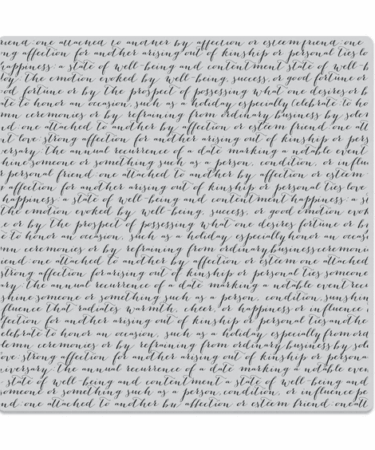 riend one attached to another by affection or esteem friend one
ng affection for another arising out of kinship or personal ties lo
happiness a state of well-being and contentment state of well-b
joy the emotion evoked by well-being, success, or good fortune or
od fortune or by the prospect of possessing what one desires or b
ate to honor an occasion, such as a holiday especially celebrate to ho
mn ceremonies or by refraining from ordinary business by sole
nd one attached to another by affection or esteem friend one att
rt love strong affection for another arising out of kinship or pers
versary the annual recurrence of a date marking a notable event
hine someone or something such as a person, condition, or influ
r personal friend one attached to another by affection or esteem
n affection for another arising out of kinship or personal ties love
happiness a state of well-being and contentment happiness a st
the emotion evoked by well-being, success, or good emotion evok
e or by the prospect of possessing what one desires fortune or by
e to honor an occasion, such as a holiday, especially honor an occasi
mn ceremonies or by refraining from ordinary business ceremoni
iend one attached to another by affection or esteem one attached
strong affection for arising out of kinship or personal ties someone
ary the annual recurrence of a date marking a notable event rec
shine someone or something such as a person, condition, sunshin
fluence that radiates warmth, cheer, or happiness or influence
fection for another arising out of kinship or personal ties and the
elebrate to honor an occasion, such as a holiday, especially from ord
lemn ceremonies or by refraining from ordinary business by sole
ove strong affection for another arising out of kinship or persona
niversary the annual recurrence of a date marking a notable even
state of well-being and contentment a state of well-being and
omeone or something such as a person, condition, or influence pe
nd one attached to another by affection or esteem friend one att